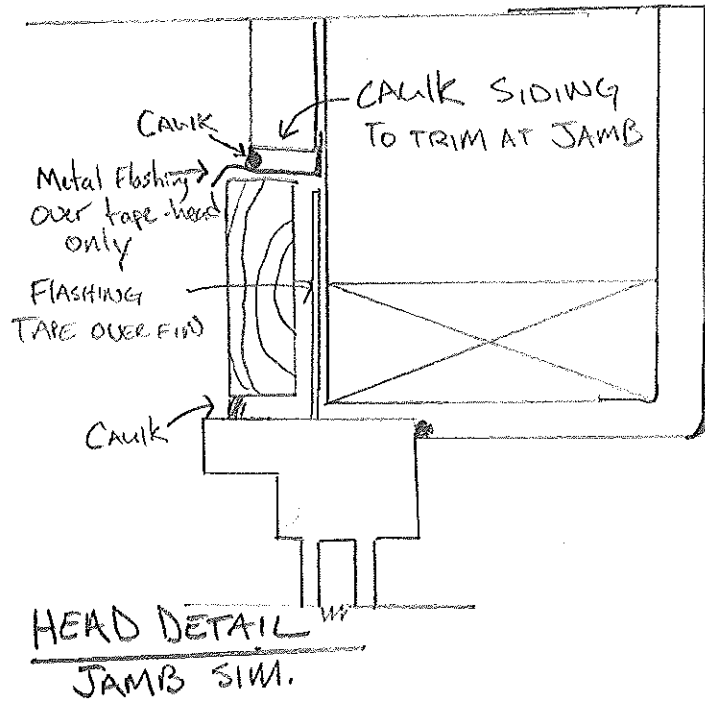 CAULK SIDING
TO TRIM AT JAMB
CAULK
Metal Flashing
over tape-head
only
FLASHING
TAPE OVER FIN
CAULK
HEAD DETAIL
JAMB SIM.